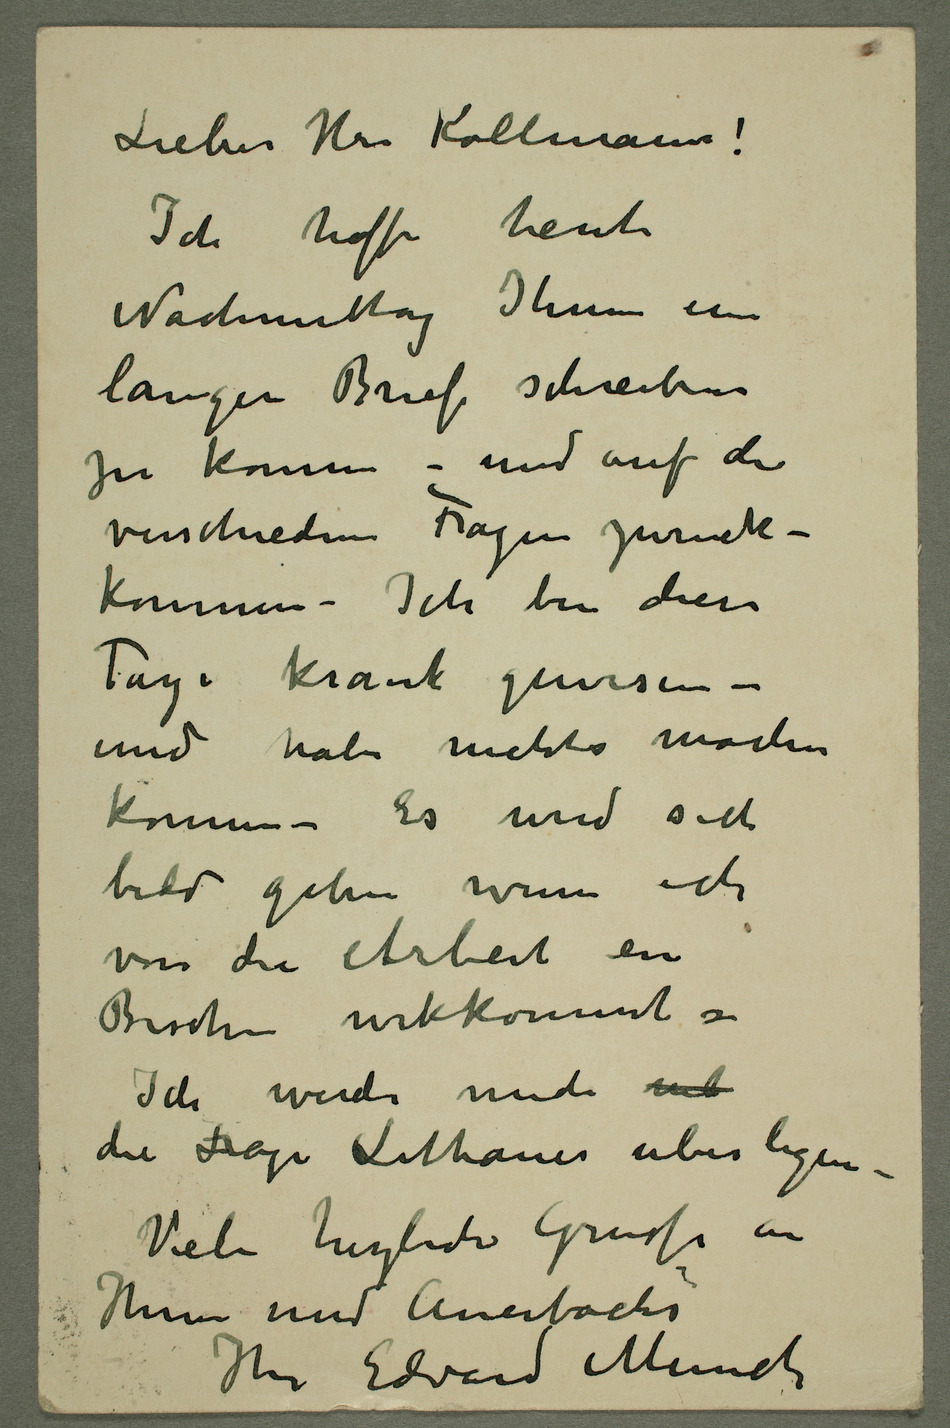 Lieber Herr Kollmann!
Ich hoffe heute
Nachmittag Ihnen ein
langen Brief schreiben
zu konnen – und auf die
verschiedene Fragen zuruck-
kommen – Ich bin diese
Tage krank gewesen –
und habe nichts machen
konnen – Es wird sich
bald geben wenn ich
von die Arbeit ein
Bischen wekkommt –
Ich werde mich mit
die Frage Litthauer uberlegen –
Viele herzliche Gruße an
Ihnen und Auerbachs
Ihr Edvard Munch